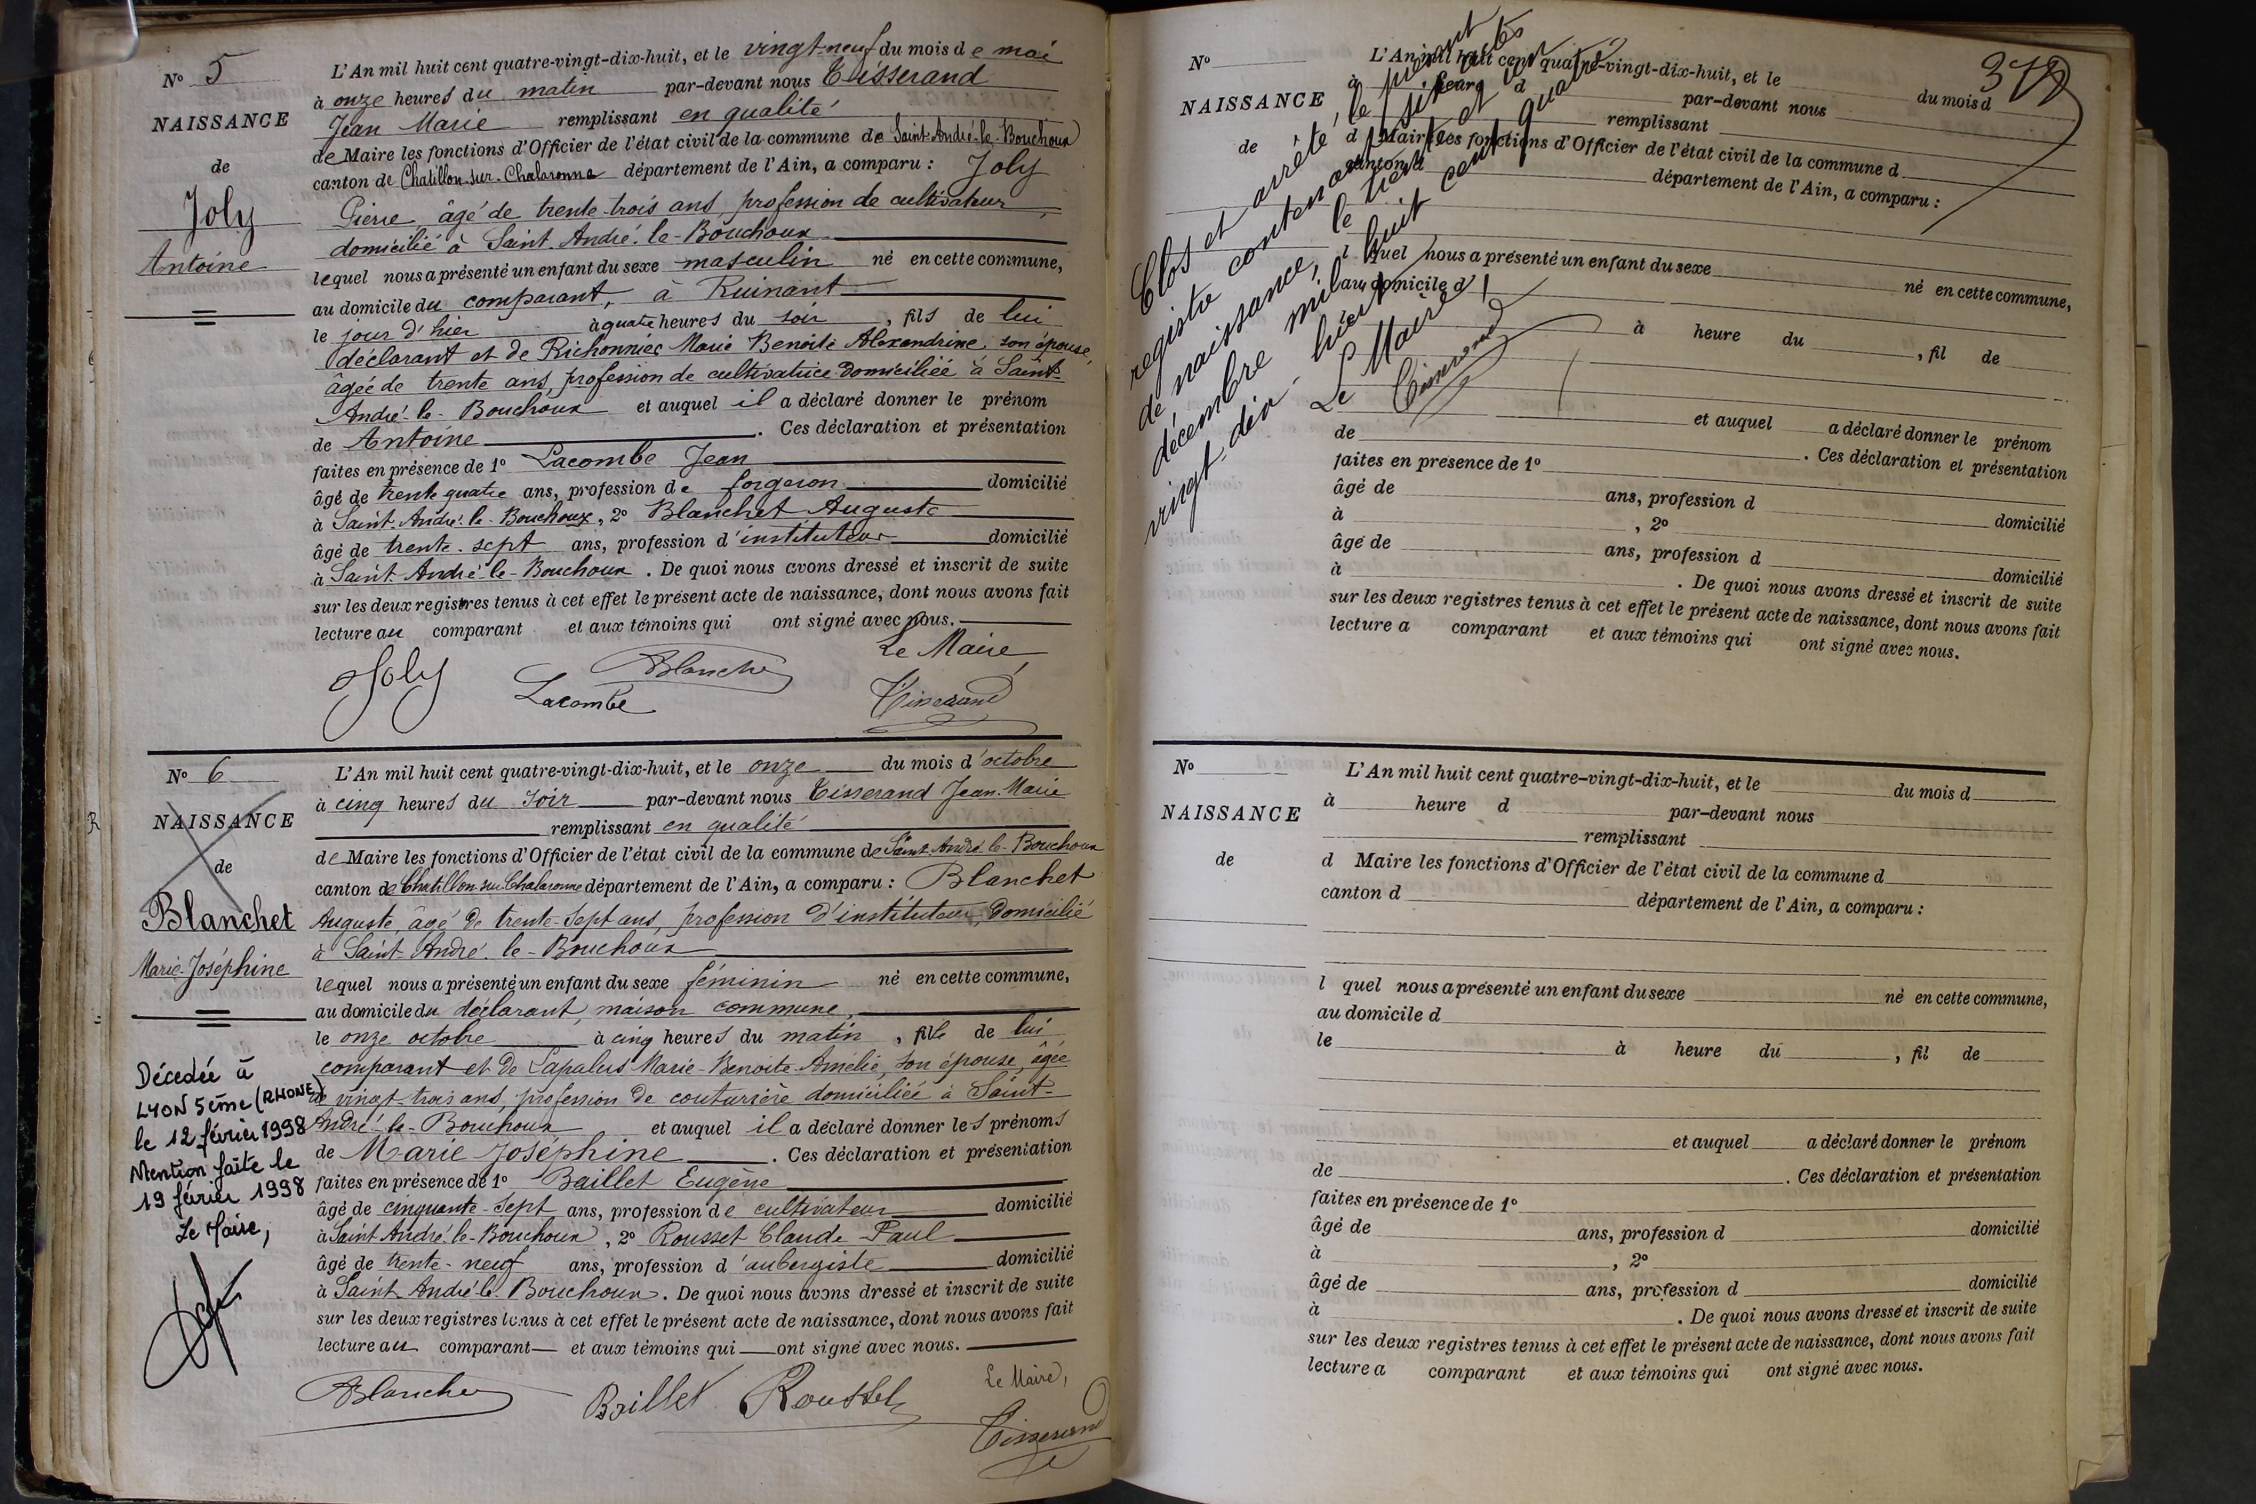 N° 5
NAISSANCE
de
Joly
Antoine
L'An mil huit cent quatre-vingt-dix-huit, et le vingt-neuf du mois de mai
à onze heures du matin par-devant nous Tisserand
Jean Marie remplissant en qualité
de Maire les fonctions d'Officier de l'état civil de la commune de Saint-André-le-Bouchoux
canton de Chatillon-sur-Chalaronne département de l'Ain, a comparu : Joly
Pierre, âgé de trente-trois ans, profession de cultivateur,
domicilié à Saint-André-le-Bouchoux
lequel nous a présenté un enfant du sexe masculin né en cette commune,
au domicile du comparant, à Ruinant
le jour d'hier à quatre heures du soir, fils de lui
déclarant et de Richonnier Marie Benoite Alexandrine, son épouse,
âgée de trente ans, profession de cultivatrice domiciliée à Saint-
André-le-Bouchoux et auquel il a déclaré donner le prénom
de Antoine. Ces déclaration et présentation
faites en présence de 1° Lacombe Jean
âgé de trente quatre ans, profession de forgeron domicilié
à Saint-André-le-Bouchoux, 2° Blanchet Auguste
âgé de trente-sept ans, profession d'instituteur domicilié
à Saint-André-le-Bouchoux. De quoi nous avons dressé et inscrit de suite
sur les deux registres tenus à cet effet le présent acte de naissance, dont nous avons fait
lecture au comparant et aux témoins qui ont signé avec nous.
Le Maire,
Joly Lacombe Blanchet Tisserand
N° 6
NAISSANCE
de
Blanchet
Marie-Joséphine
Décedée à
LYON 5ème (RHONE)
le 12 février 1998
Mention faite le
19 février 1998
Le Maire,
L'An mil huit cent quatre-vingt-dix-huit, et le onze du mois d'octobre
à cinq heures du soir par-devant nous Tisserand Jean-Marie
remplissant en qualité
de Maire les fonctions d'Officier de l'état civil de la commune de Saint-André-le-Bouchoux
canton de Chatillon sur Chalaronne département de l'Ain, a comparu : Blanchet
Auguste, âgé de trente-sept ans, profession d'instituteur, domicilié
à Saint-André-le-Bouchoux
lequel nous a présenté un enfant du sexe féminin né en cette commune,
au domicile du déclarant, maison commune,
le onze octobre à cinq heures du matin, fille de lui
comparant et de Lapalus Marie-Benoite-Amélie, son épouse, âgée
de vingt-trois ans, profession de couturière domiciliée à Saint-
André-le-Bouchoux et auquel il a déclaré donner les prénoms
de Marie Joséphine. Ces déclaration et présentation
faites en présence de 1° Baillet Eugène
âgé de cinquante-sept ans, profession de cultivateur domicilié
à Saint André-le-Bouchoux, 2° Rousset Claude Paul
âgé de trente-neuf ans, profession d'aubergiste domicilié
à Saint-André-le-Bouchoux. De quoi nous avons dressé et inscrit de suite
sur les deux registres tenus à cet effet le présent acte de naissance, dont nous avons fait
lecture au comparant et aux témoins qui ont signé avec nous.
Le Maire,
Blanchet Baillet Rousset Tisserand
N°
NAISSANCE
de
L'An mil huit cent quatre-vingt-dix-huit, et le du mois d
à heure d par-devant nous
remplissant
d Maire les fonctions d'Officier de l'état civil de la commune d
canton d département de l'Ain, a comparu :
l quel nous a présenté un enfant du sexe né en cette commune,
au domicile d
à heure du , fil de
et auquel a déclaré donner le prénom
de . Ces déclaration et présentation
faites en présence de 1°
âgé de ans, profession d domicilié
à , 2°
âgé de ans, profession d domicilié
à . De quoi nous avons dressé et inscrit de suite
sur les deux registres tenus à cet effet le présent acte de naissance, dont nous avons fait
lecture a comparant et aux témoins qui ont signé avec nous.
Clos et arrêté, le présent
registre contenant six actes
de naissance, le trente et un
décembre mil huit cent quatre
vingt-dix-huit.
Le Maire,
Tisserand
N°
NAISSANCE
de
L'An mil huit cent quatre-vingt-dix-huit, et le du mois d
à heure d par-devant nous
remplissant
d Maire les fonctions d'Officier de l'état civil de la commune d
canton d département de l'Ain, a comparu :
l quel nous a présenté un enfant du sexe né en cette commune,
au domicile d
le à heure du , fil de
et auquel a déclaré donner le prénom
de . Ces déclaration et présentation
faites en présence de 1°
âgé de ans, profession d domicilié
à , 2°
âgé de ans, profession d domicilié
à . De quoi nous avons dressé et inscrit de suite
sur les deux registres tenus à cet effet le présent acte de naissance, dont nous avons fait
lecture a comparant et aux témoins qui ont signé avec nous.